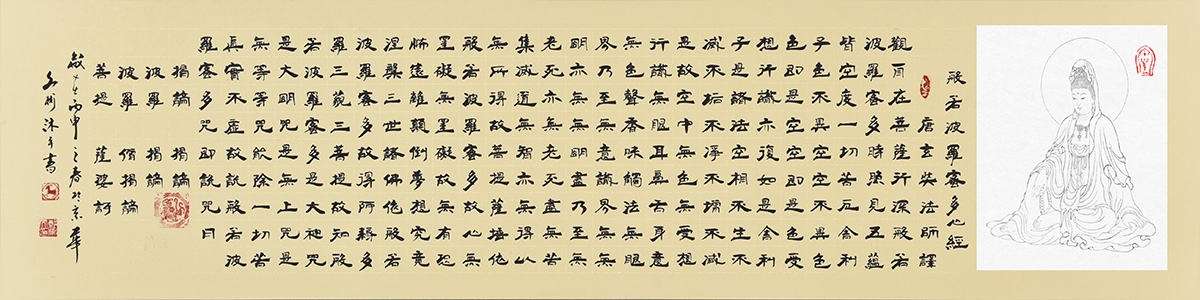 般若波羅蜜多心經
唐玄奘法師譯
觀自在菩薩行深般若
波羅蜜多時照見五蘊
皆空度一切苦厄舍利
子色不異空空不異色
色即是空空即是色受
想行識亦復如是舍利
子是諸法空相不生不
滅不垢不淨不增不減
是故空中無色無受想
行識無眼耳鼻舌身意
無色聲香味觸法無眼
界乃至無意識界無無
明亦無無明盡乃至無
老死亦無老死盡無苦
集滅道無智亦無得以
無所得故菩提薩埵依
般若波羅蜜多故心無
罣礙無罣礙故無有恐
怖遠離顛倒夢想究竟
涅槃三世諸佛依般若
波羅蜜多故得阿耨多
羅三藐三菩提故知般
若波羅蜜多是大神咒
是大明咒是無上咒是
無等等咒能除一切苦
真實不虛故說般若波
羅蜜多咒即說咒曰
揭諦 揭諦
波羅 揭諦
波羅 僧揭諦
菩提 薩婆訶
歲在丙申之春於京華